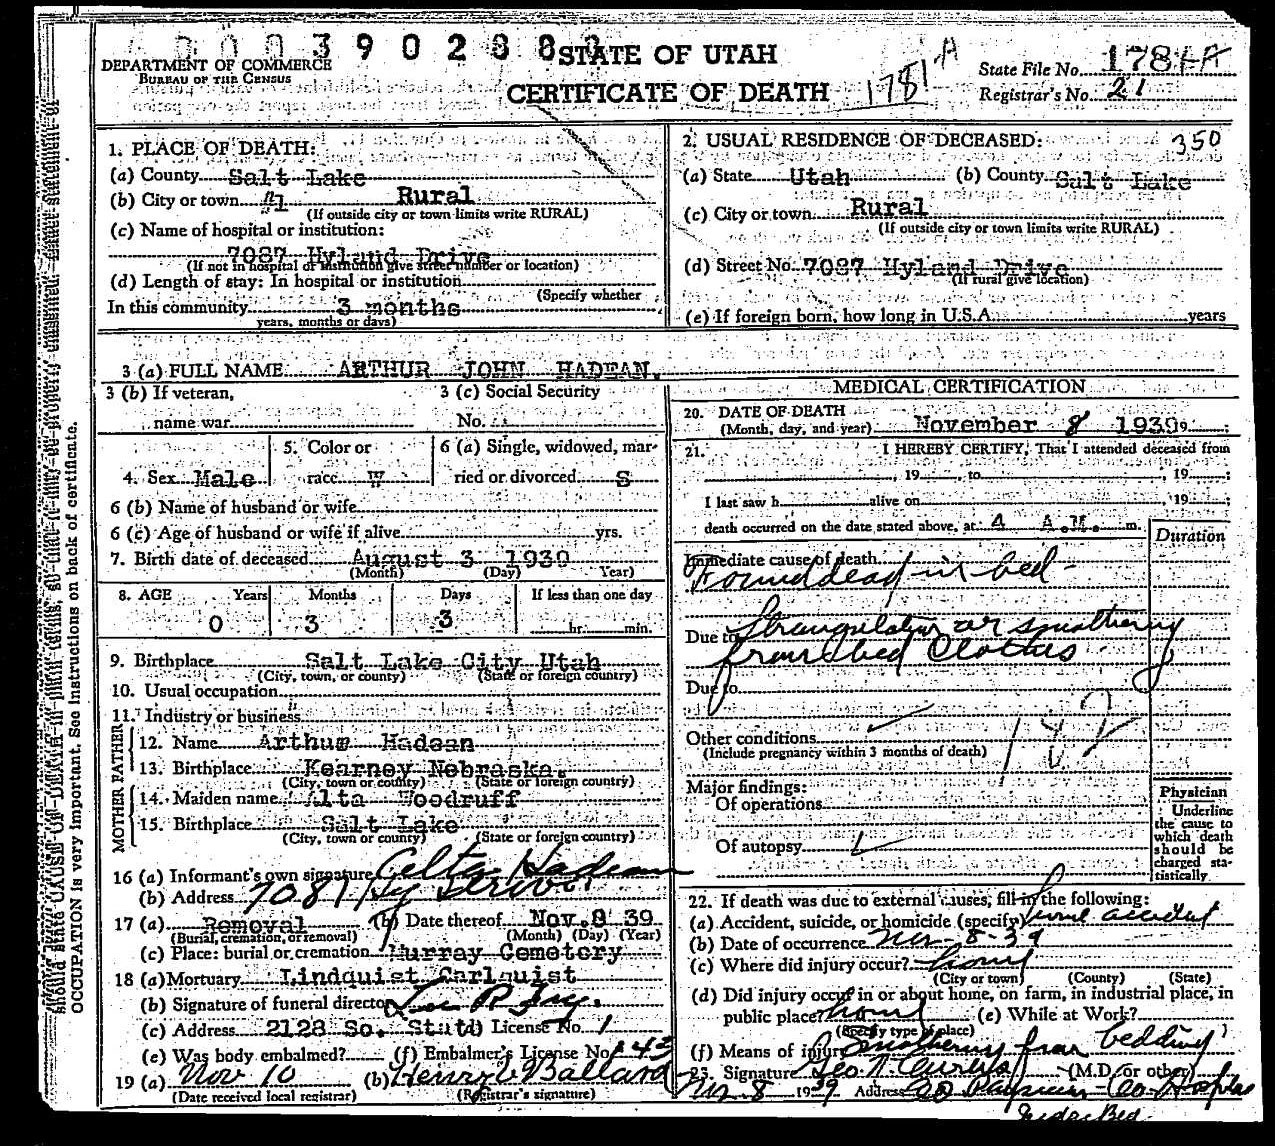 390288
STATE OF UTAH
DEPARTMENT OF COMMERCE
BUREAU OF THE CENSUS
CERTIFICATE OF DEATH
1781 A
State File No. 1781-A
Registrar's No. 21
1. PLACE OF DEATH:
(a) County Salt Lake
(b) City or town #1 Rural
(If outside city or town limits write RURAL)
(c) Name of hospital or institution:
7087 Hyland Drive
(If not in hospital or institution give street number or location)
(d) Length of stay: In hospital or institution
(Specify whether
In this community 3 months
years, months or days)
2. USUAL RESIDENCE OF DECEASED: 350
(a) State Utah (b) County Salt Lake
(c) City or town Rural
(If outside city or town limits write RURAL)
(d) Street No. 7087 Hyland Drive
(If rural give location)
(e) If foreign born, how long in U.S.A. years
3 (a) FULL NAME ARTHUR JOHN HADEAN.
3 (b) If veteran,
name war
3 (c) Social Security
No.
4. Sex Male
5. Color or
race W
6 (a) Single, widowed, mar-
ried or divorced S
6 (b) Name of husband or wife
6 (c) Age of husband or wife if alive yrs.
7. Birth date of deceased August 3 1939
(Month) (Day) Year)
8. AGE Years Months Days If less than one day
0 3 3 hr. min.
9. Birthplace Salt Lake City Utah
(City, town, or county) (State or foreign country)
10. Usual occupation
11. Industry or business
FATHER
12. Name Arthur Hadean
13. Birthplace Kearney Nebraska.
(City, town or county) (State or foreign country)
MOTHER
14. Maiden name Alta Woodruff
15. Birthplace Salt Lake
(City, town or county) (State or foreign country)
16 (a) Informant's own signature Hadean
(b) Address 7087 Hy Drive
17 (a) Removal (b) Date thereof Nov. 8 39
(Burial, cremation, or removal) (Month) (Day) (Year)
(c) Place: burial or cremation Murray Cemetery
18 (a) Mortuary Lindquist Carlquist
(b) Signature of funeral director
(c) Address 2128 So. State (d) License No. 1
(e) Was body embalmed? (f) Embalmer's License No.
19 (a) Nov 10 (b) Henry V Ballard
(Date received local registrar) (Registrar's signature)
MEDICAL CERTIFICATION
20. DATE OF DEATH
(Month, day, and year) November 8 1939
21. I HEREBY CERTIFY, That I attended deceased from
, 19 to , 19 ;
I last saw h alive on , 19 ;
death occurred on the date stated above, at 4 A.M. m.
Duration
Immediate cause of death
Found dead in bed -
Due to Strangulation or smothering
from bed Clothes
Due to
Other conditions
(Include pregnancy within 3 months of death)
182
Major findings:
Of operations
Of autopsy
Physician
Underline
the cause to
which death
should be
charged sta-
tistically.
22. If death was due to external causes, fill in the following:
(a) Accident, suicide, or homicide (specify) home accident
(b) Date of occurrence Nov - 8 - 39
(c) Where did injury occur? home
(City or town) (County) (State)
(d) Did injury occur in or about home, on farm, in industrial place, in
public place home (e) While at Work?
(Specify type of place)
(f) Means of injury Smothering from bedding
23. Signature Geo N Curtis (M.D. or other)
Nov. 8 1939 Address Co Physician - Co Hospital
should state CAUSE OF DEATH in plain terms, so that it may be properly classified. Exact statement of
OCCUPATION is very important. See instructions on back of certificate.